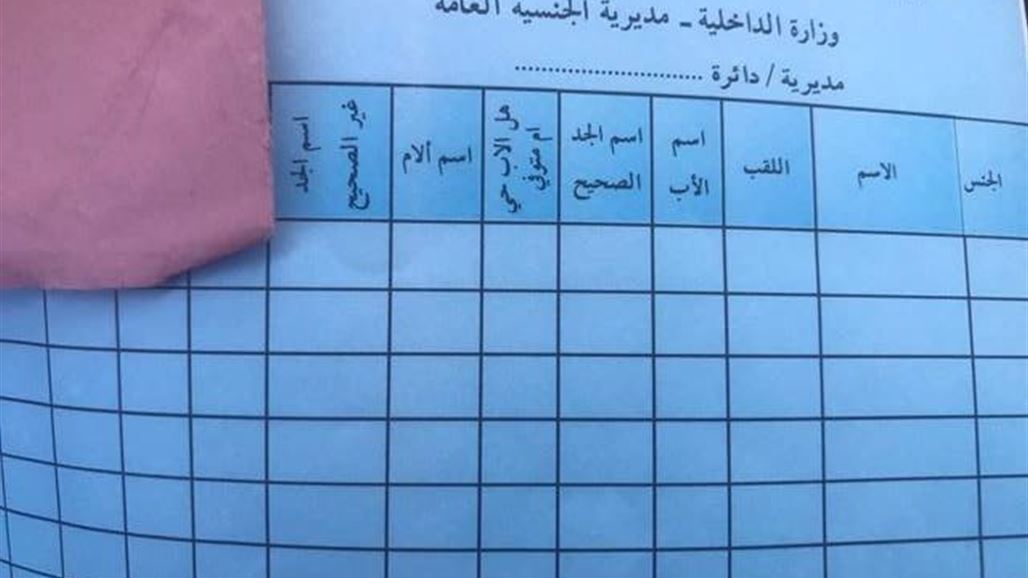 وزارة الداخلية - مديرية الجنسية العامة
مديرية / دائرة ..............................
الجنس
الاسم
اللقب
اسم
الأب
اسم الجد
الصحيح
هل الاب حي
ام متوفي
اسم ألام
غير الصحيح
اسم الجد